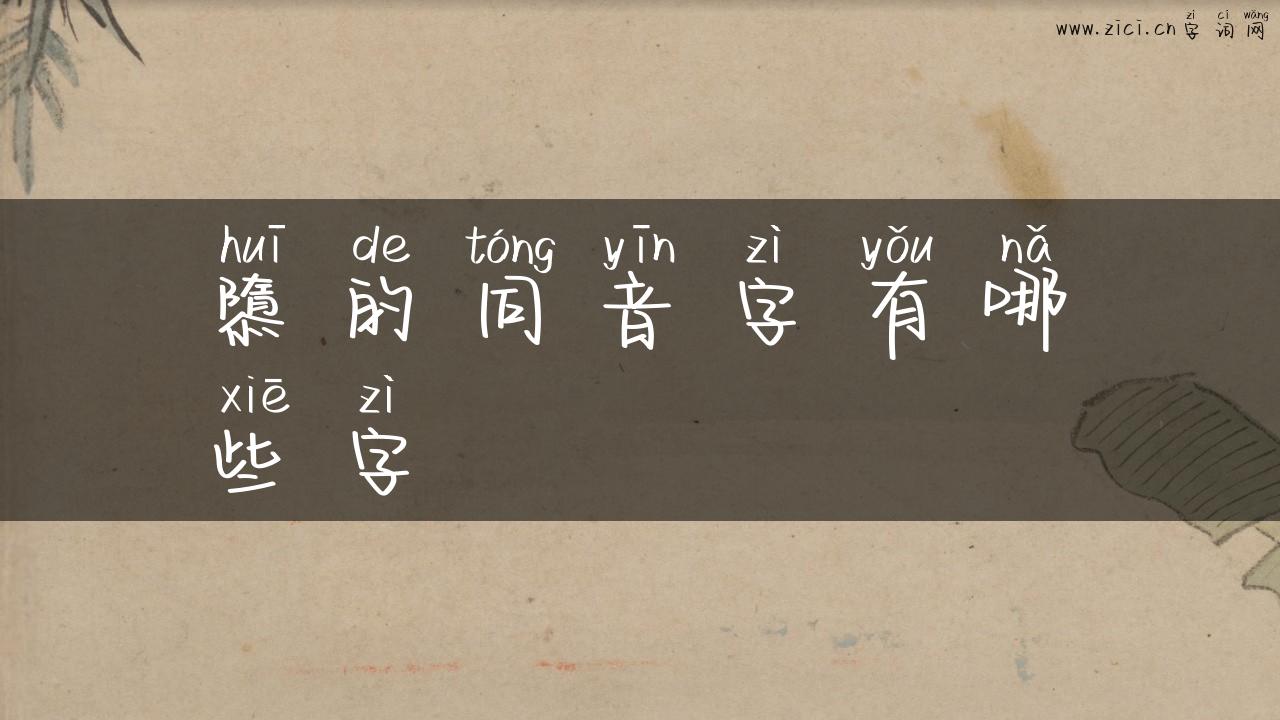 zì cí wǎng
www.zici.cn 字词网
huī de tóng yīn zì yǒu nǎ
隳的同音字有哪
xiē zì
些字